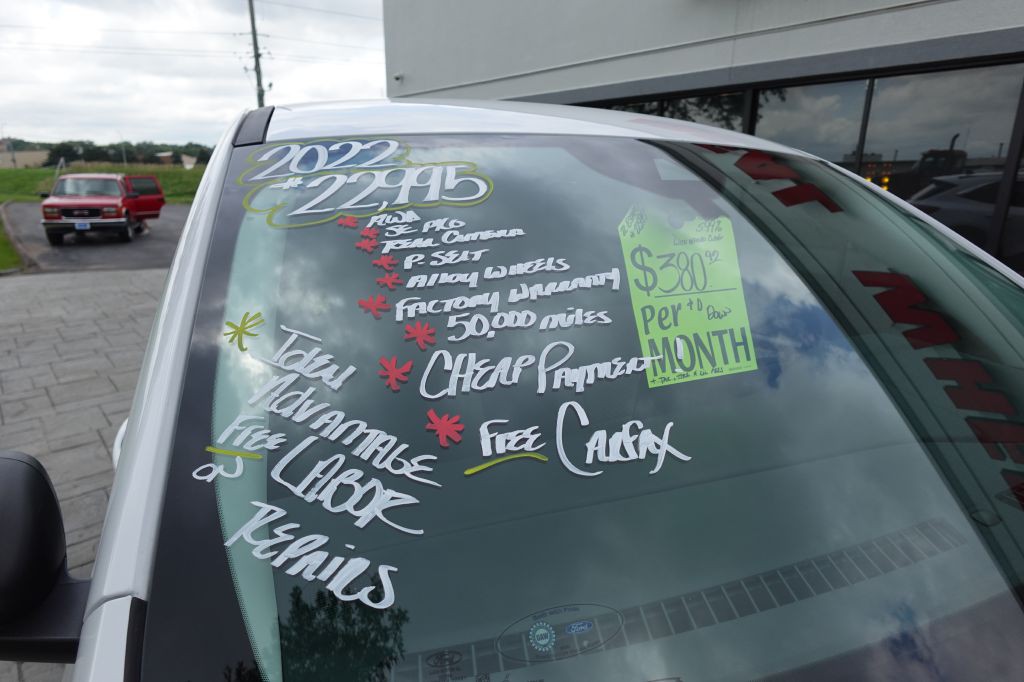 2022
$22,995
* AWD
* SE PKG
* REAR CAMERA
* P. SEAT
* ALLOY WHEELS
* FACTORY WARRANTY
50,000 miles
* CHEAP PAYMENT!
* FREE CARFAX
*
ADVANTAGE
FREE LABOR
on REPAIRS
$380.92
Per
MONTH
+ D
Down
Ford
UAW